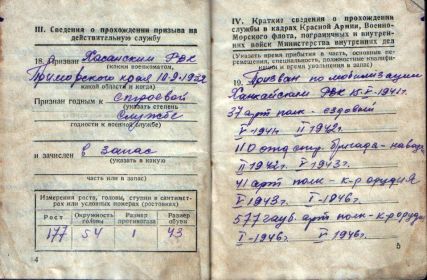 III. Сведения о прохождении призыва на
действительную службу
18. Призван Хасанским РВК
(каким военкоматом,
Приморского края 10.9.19
какой области и когда)
Признан годным к строевой
(указать степень
службе
годности к военной службе)
и зачислен в запас
(указать в какую
часть или в запас)
Измерения роста, головы, ступни в сантимет-
рах или условных номерах (ростовках)
Рост
Окружность головы
Размер противогаза
Размер обуви
177 54 1 43
4
IV. Краткие сведения о прохождении
службы в кадрах Красной Армии, Военно-
Морского флота, пограничных и внутрен-
них войск Министерства внутренних дел
(Указать время прибытия в часть, основные пе-
ремещения, специальность, должностной квалифика-
ции и время увольнения в запас)
19. Призван по мобилизации
Ханкайским РВК 15-V-1941 г.
37 арт полк - ездовый
V-1941 г. II 1942 г.
110 отд стр бригада - навод
II 1942 г. V-1943 г.
41 арт полк - к-р орудия
V-1943 г. I-1946 г.
577 гауб. арт полк - к-р орудия
I-1946 г. V-1946 г.
5